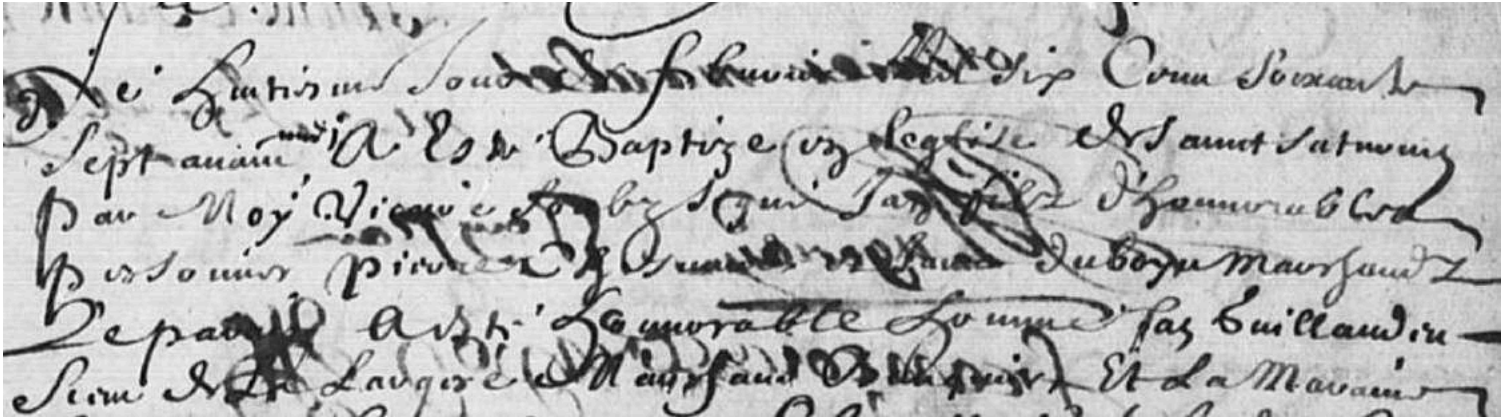 Le huitiesme Jour de febvrier mil six Cens soixante
Sept avant midi A Este Baptize en leglise de Sainct Saturnin
Par Moy Vicaire soubz signe Jan filz d'honnorables
personnes pierre et duboys Marchandz
Le parin A este honnorable homme Jan Guillaudeu
Sieur de La Laugere Marchand Et La Maraine